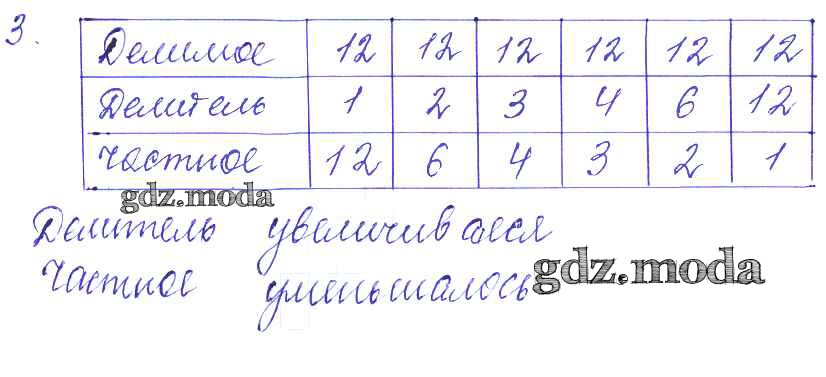 3.
Делимое 12 12 12 12 12 12
Делитель 1 2 3 4 6 12
Частное 12 6 4 3 2 1
gdz.moda
Делитель увеличивался
Частное уменьшалось
gdz.moda